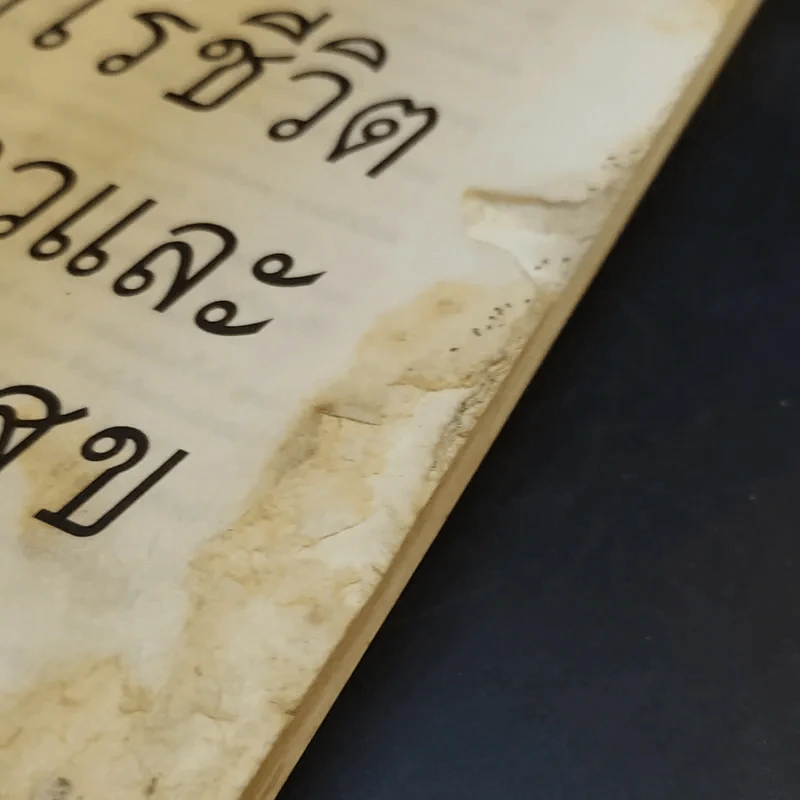 เรชีวิต
วและ
สุข